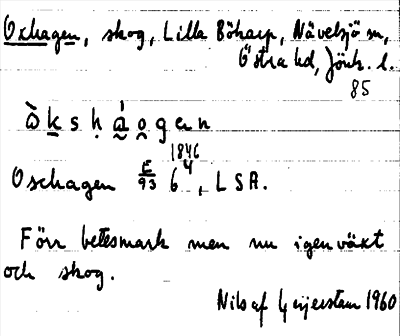 Oxhagen, skog, Lilla Böharp, Nävelsjö sn,
Östra hd, Jönk. l.
85
ὼ k s ḥ å̀ o g ɑ n
1846
Oschagen E/93 6 4, LSA.
Förr betesmark men nu igenväxt
och skog.
Nils af Geijerstam 1960